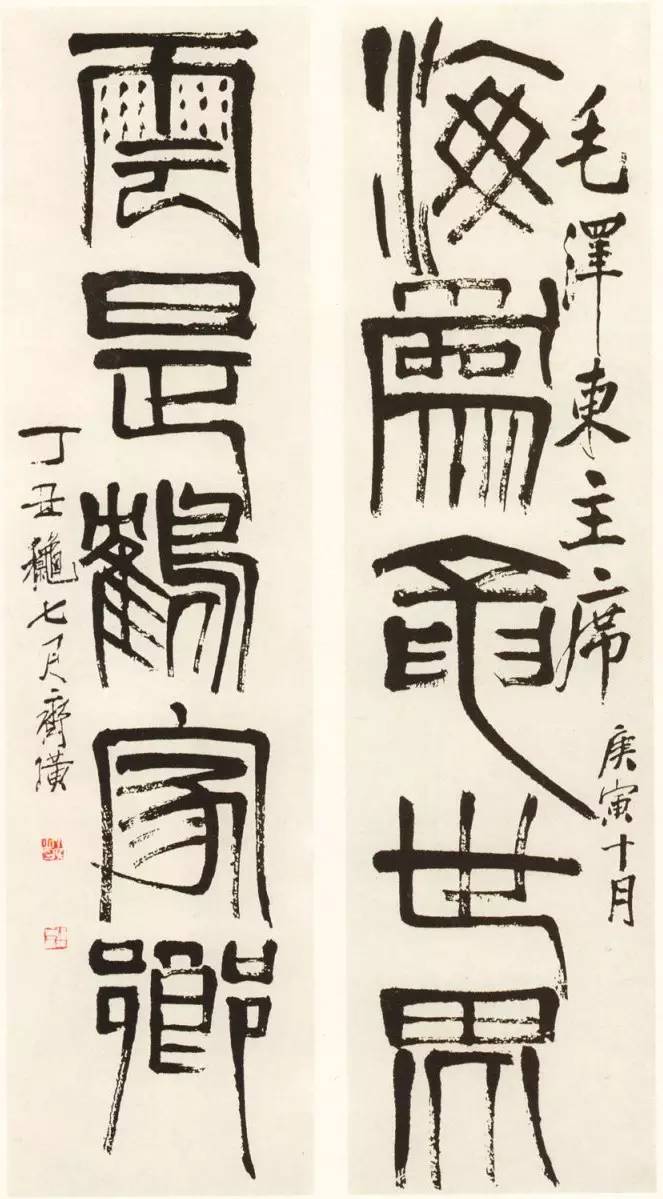 毛澤東主席
庚寅十月
海為龍世界
雲是鶴家鄉
丁丑龝七月齊璜